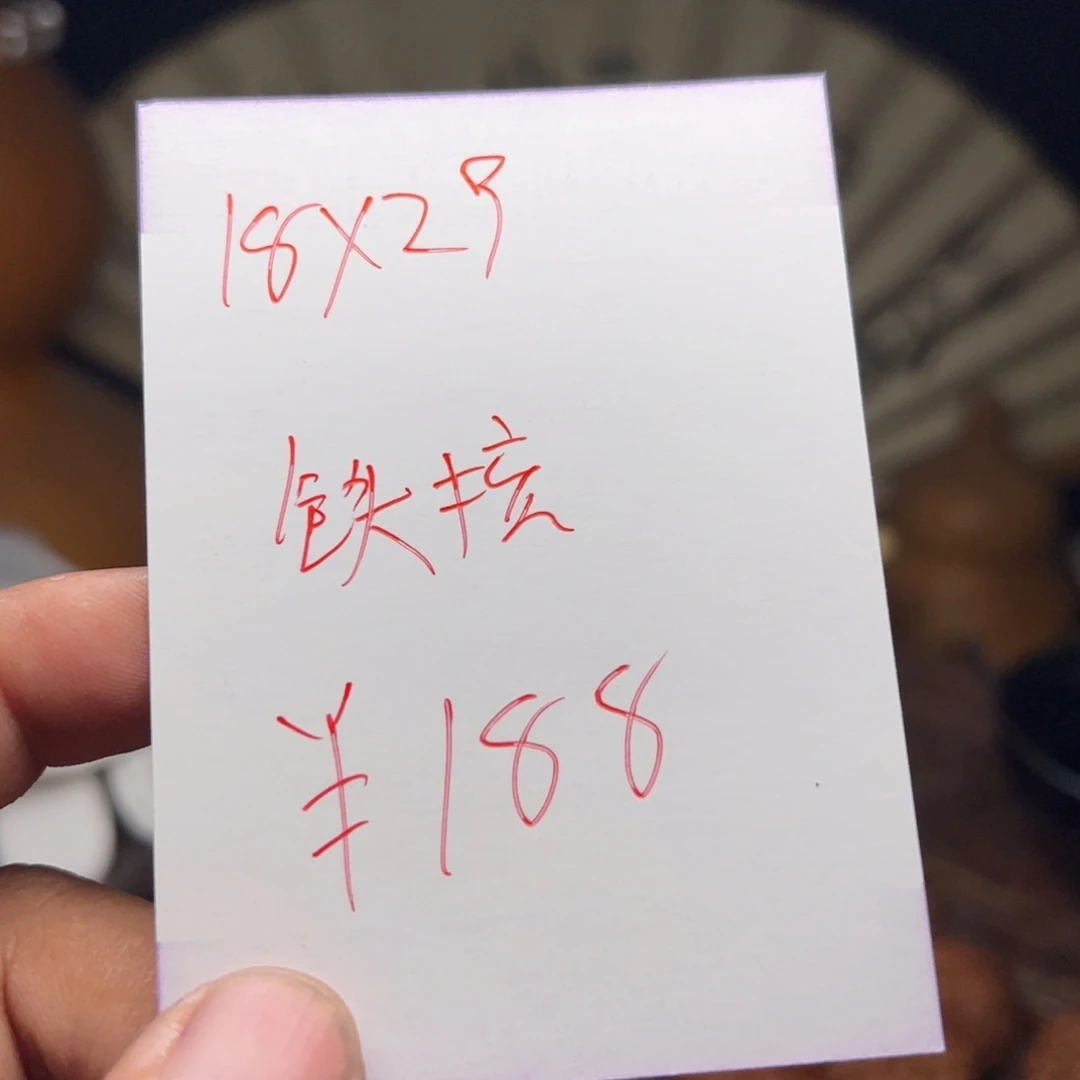 18X29
铁核
¥188